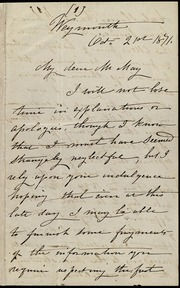 (1)
Weymouth
Oct. 21st 1871.
My dear Mr May
I will not lose
time in explanations or
apologies, though I know
that I must have seemed
strangely neglectful, but I
rely upon your indulgence
hoping that even at this
late day I may be able
to furnish some fragments
of the information you
require respecting the first